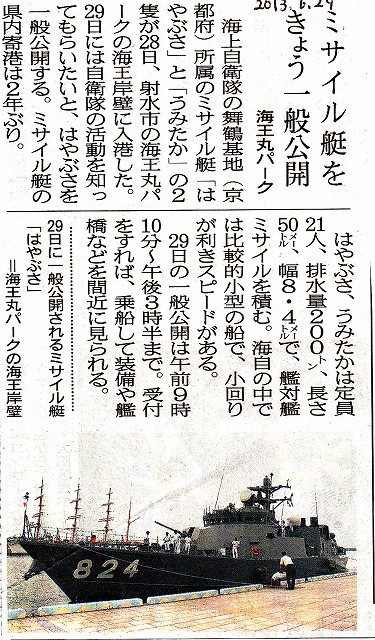 2013.6.29
ミサイル艇を
きょう一般公開
海王丸パーク
海上自衛隊の舞鶴基地(京
都府)所属のミサイル艇「は
やぶさ」と「うみたか」の2
隻が28日、射水市の海王丸パ
ークの海王岸壁に入港した。
29日には自衛隊の活動を知っ
てもらいたいと、はやぶさを
一般公開する。ミサイル艇の
県内寄港は2年ぶり。
はやぶさ、うみたかは定員
21人、排水量200トン、長さ
50メートル、幅8・4メートルで、艦対艦
ミサイルを積む。海自の中で
は比較的小型の船で、小回り
が利きスピードがある。
29日の一般公開は午前9時
10分〜午後3時半まで。受付
をすれば、乗船して装備や艦
橋などを間近に見られる。
29日に一般公開されるミサイル艇
「はやぶさ」
=海王丸パークの海王岸壁
824